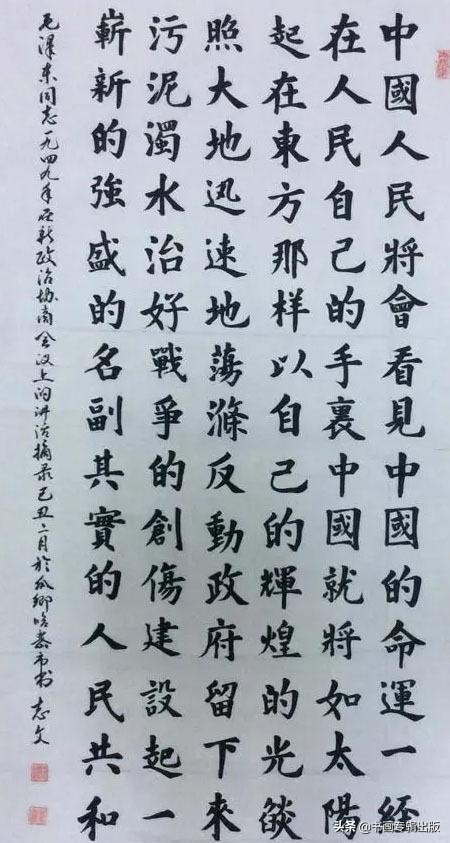 中國人民將會看見中國的命運一經
在人民自己的手裏中國就將如太陽
起在東方那样以自己的輝煌的光燄
照大地迅速地蕩滌反動政府留下來
污泥濁水治好戰爭的創傷建設起一
嶄新的強盛的名副其實的人民共和
毛澤東同志一九四九年在新政治协商会议上的讲话摘录己丑二月於瓜鄉哈密市书 志文
头条 @书画专辑出版